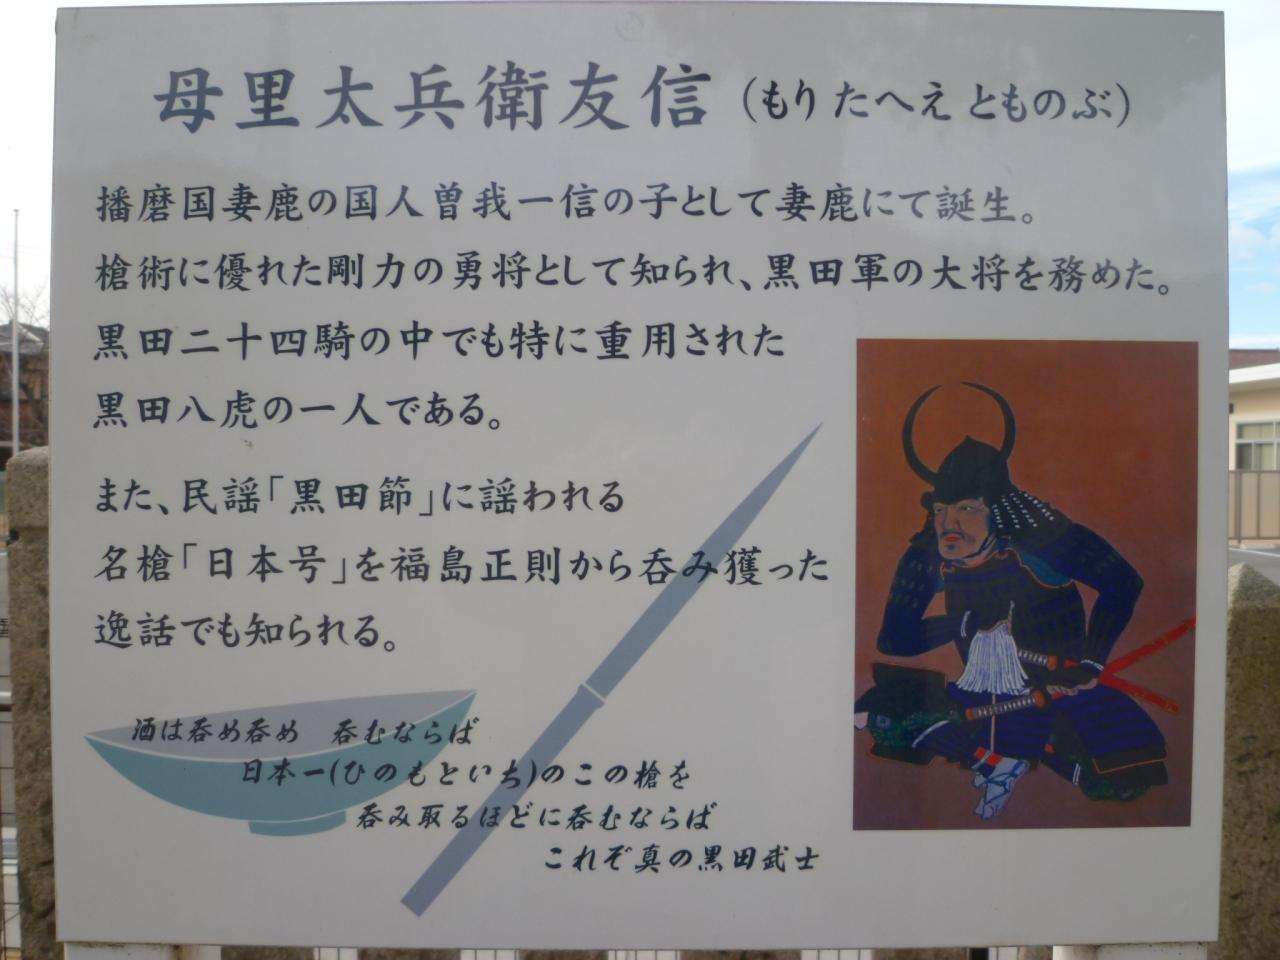 母里太兵衛友信(もり たへえ とものぶ)
播磨国妻鹿の国人曽我一信の子として妻鹿にて誕生。
槍術に優れた剛力の勇将として知られ、黒田軍の大将を務めた。
黒田二十四騎の中でも特に重用された
黒田八虎の一人である。
また、民謡「黒田節」に謡われる
名槍「日本号」を福島正則から呑み獲った
逸話でも知られる。
酒は呑め呑め 呑むならば
日本一(ひのもといち)のこの槍を
呑み取るほどに呑むならば
これぞ真の黒田武士